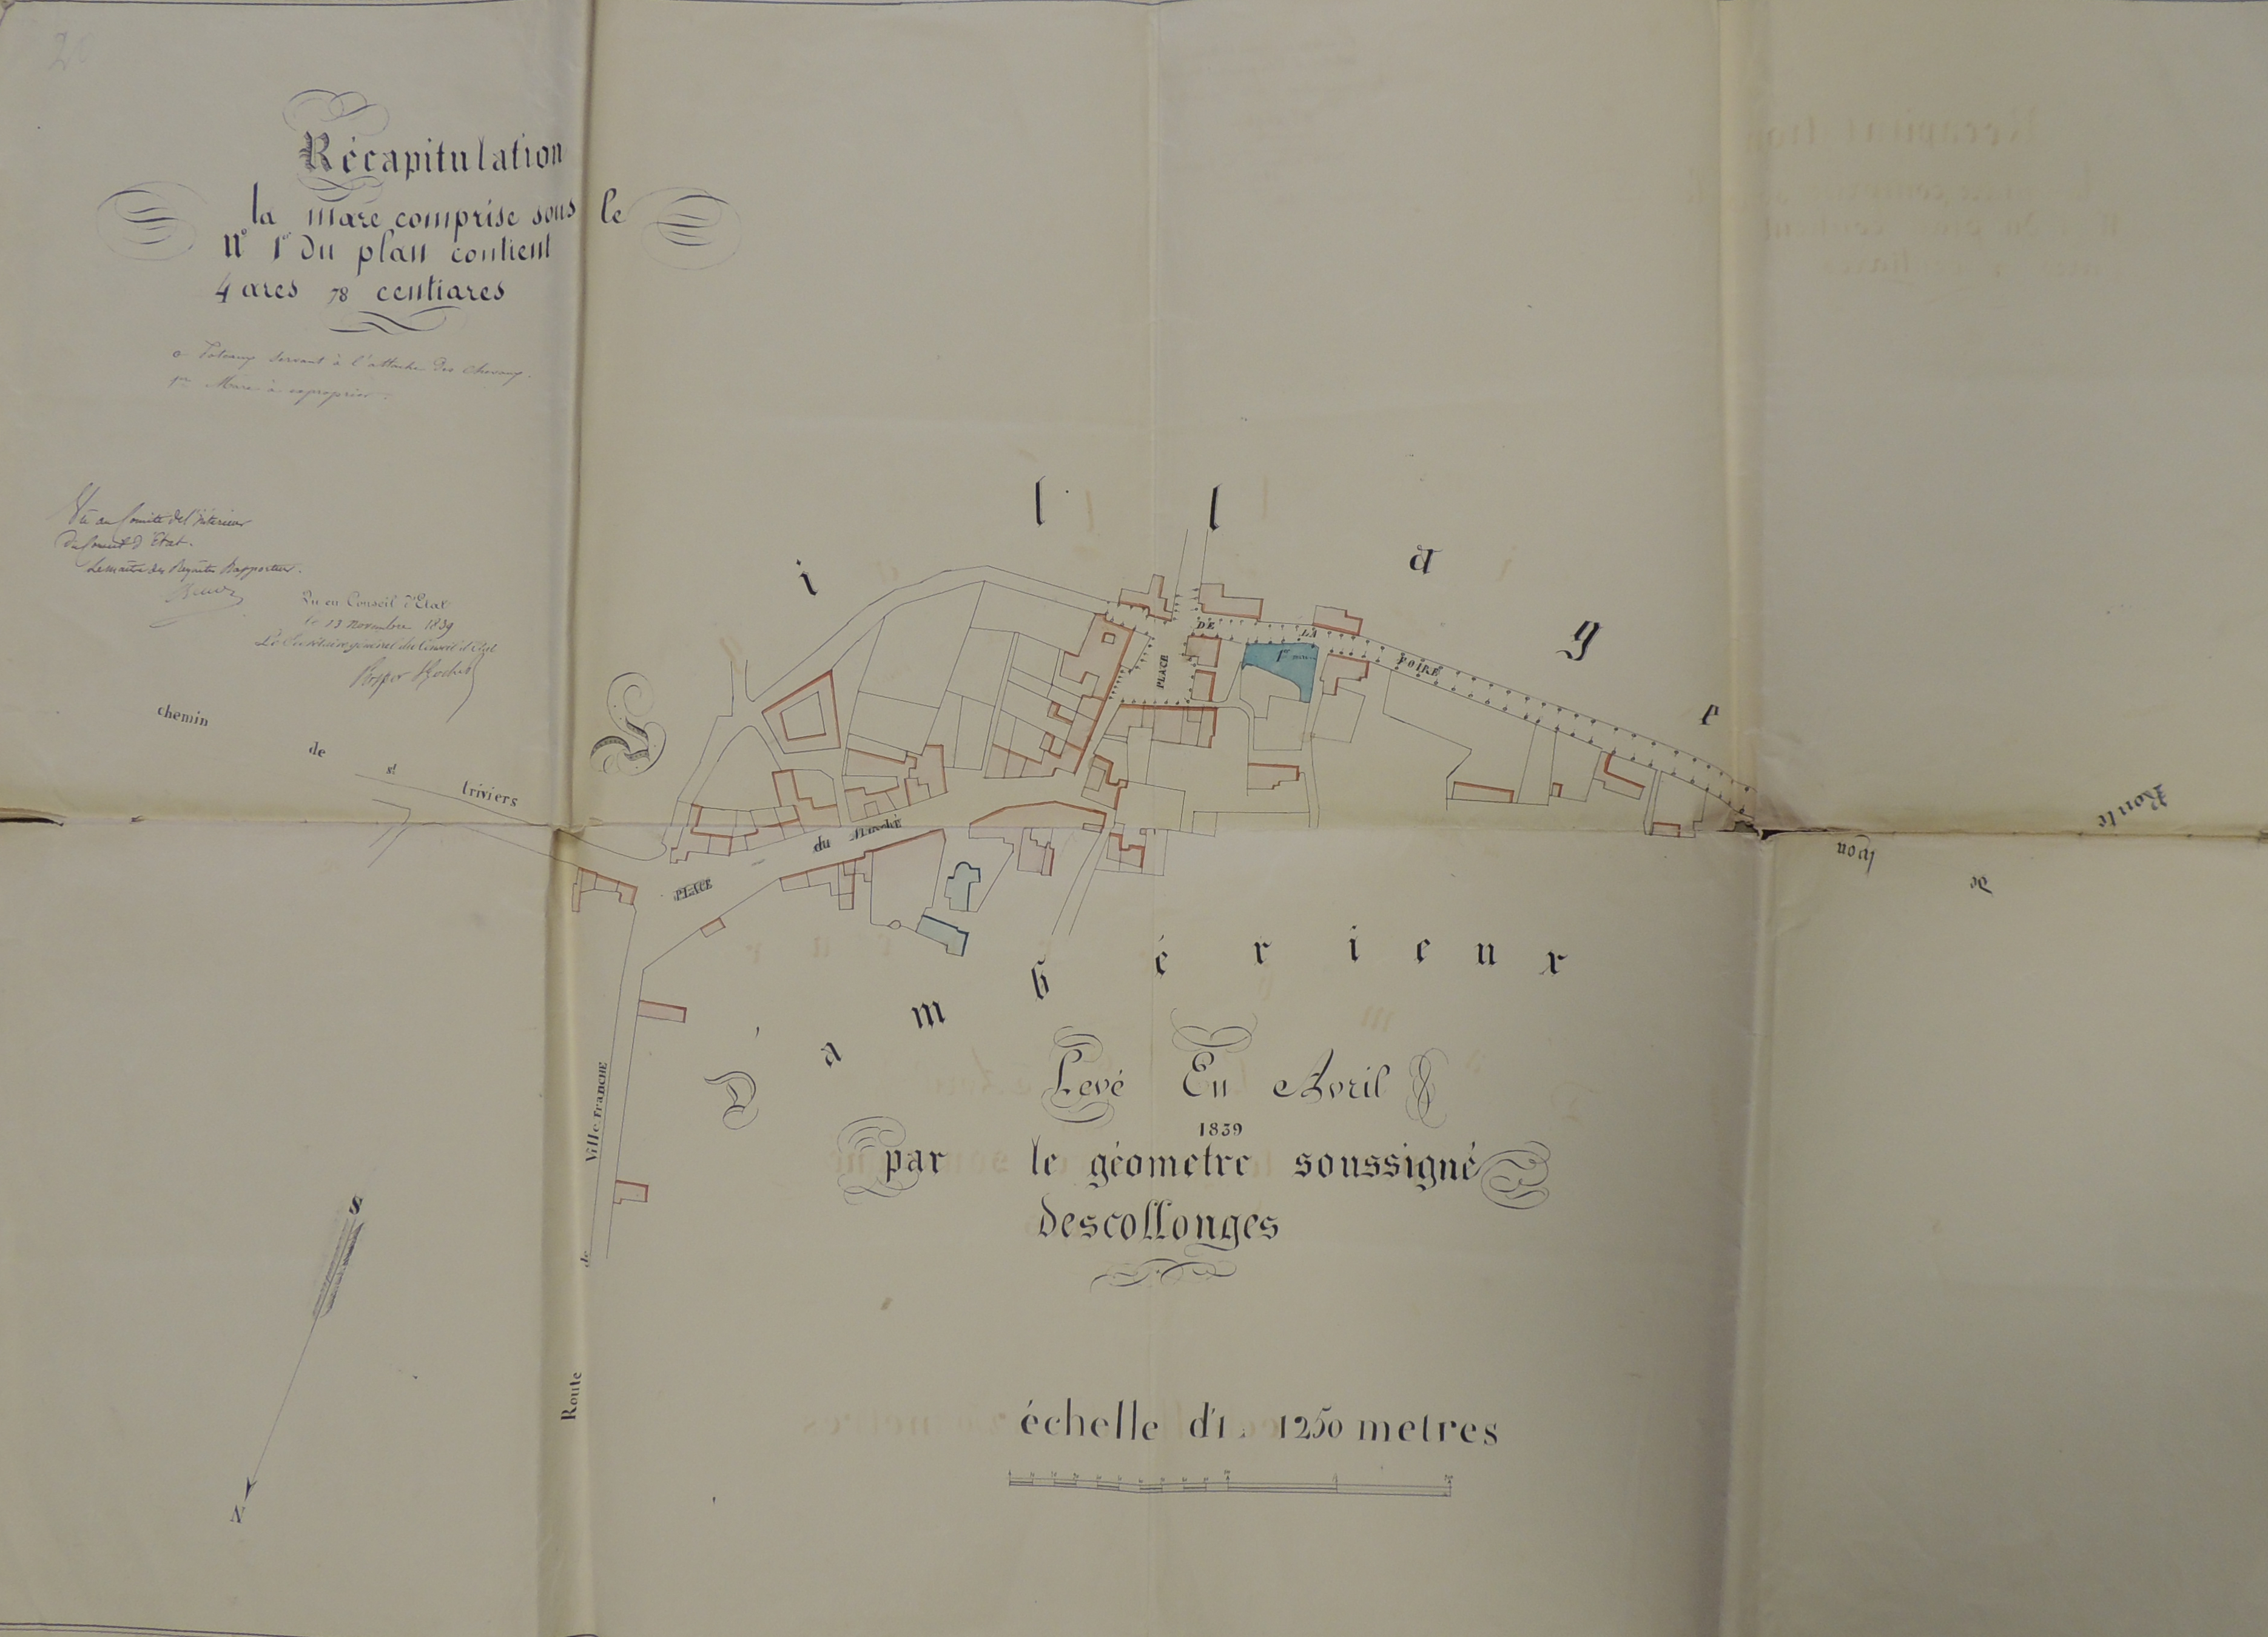 20
Récapitulation
la mare comprise sous le
n° 1er du plan contient
4 ares 78 centiares
o Poteaux servant à l'attache des chevaux.
1er Mare à exproprier.
Vu au Comité de l'Intérieur
du Conseil d'Etat.
Le maître des Requêtes Rapporteur.
Vu en Conseil d'Etat
le 13 novembre 1839
Le Secrétaire général du Conseil d'Etat
Prosper Hochet
Village
chemin de st triviers
PLACE DE LA FOIRE
1er mare
PLACE du Marché
Route de lyon
Route de Ville FRANCHE
D'ambérieux
Levé En Avril
1839
par le géometre soussigné
descollonges
S
N
échelle d'1 . 1250 metres